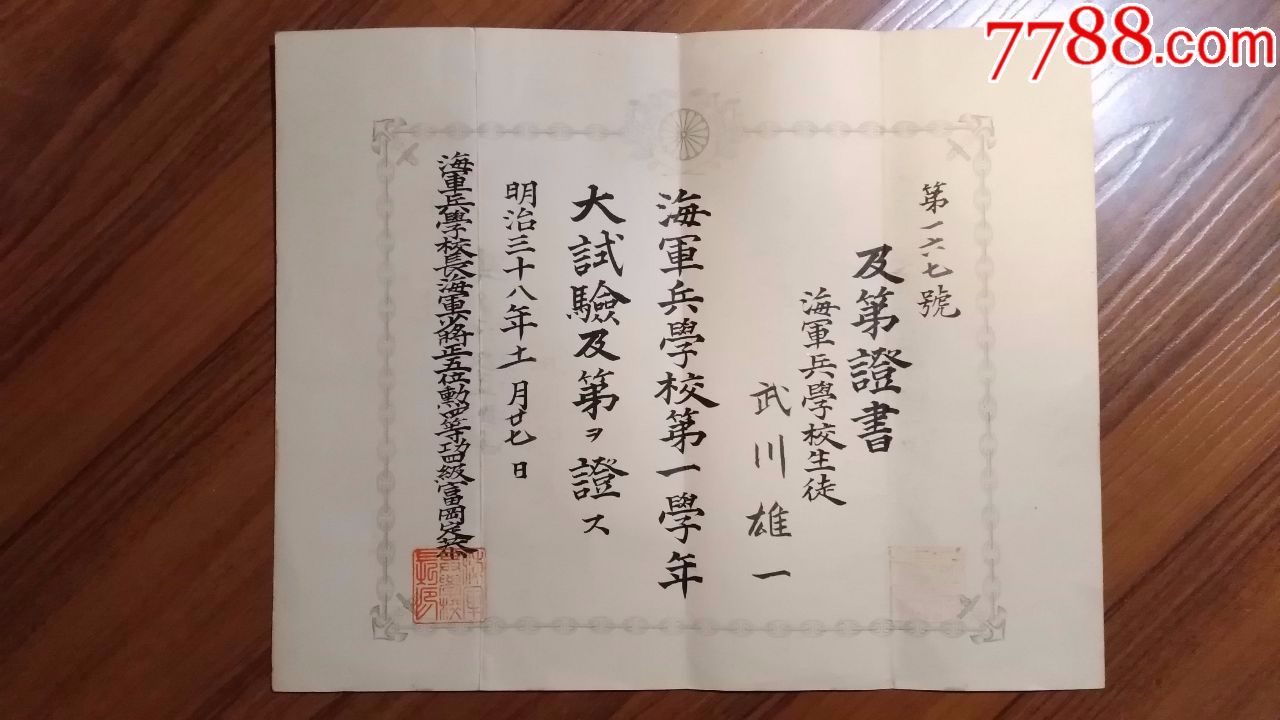 7788.com
第一六七號
及第證書
海軍兵學校生徒
武川雄一
海軍兵學校第一學年
大試驗及第ヲ證ス
明治三十八年十一月廿七日
海軍兵學校長海軍少將正五位勳四等功四級富岡定恭
海軍兵學校長印